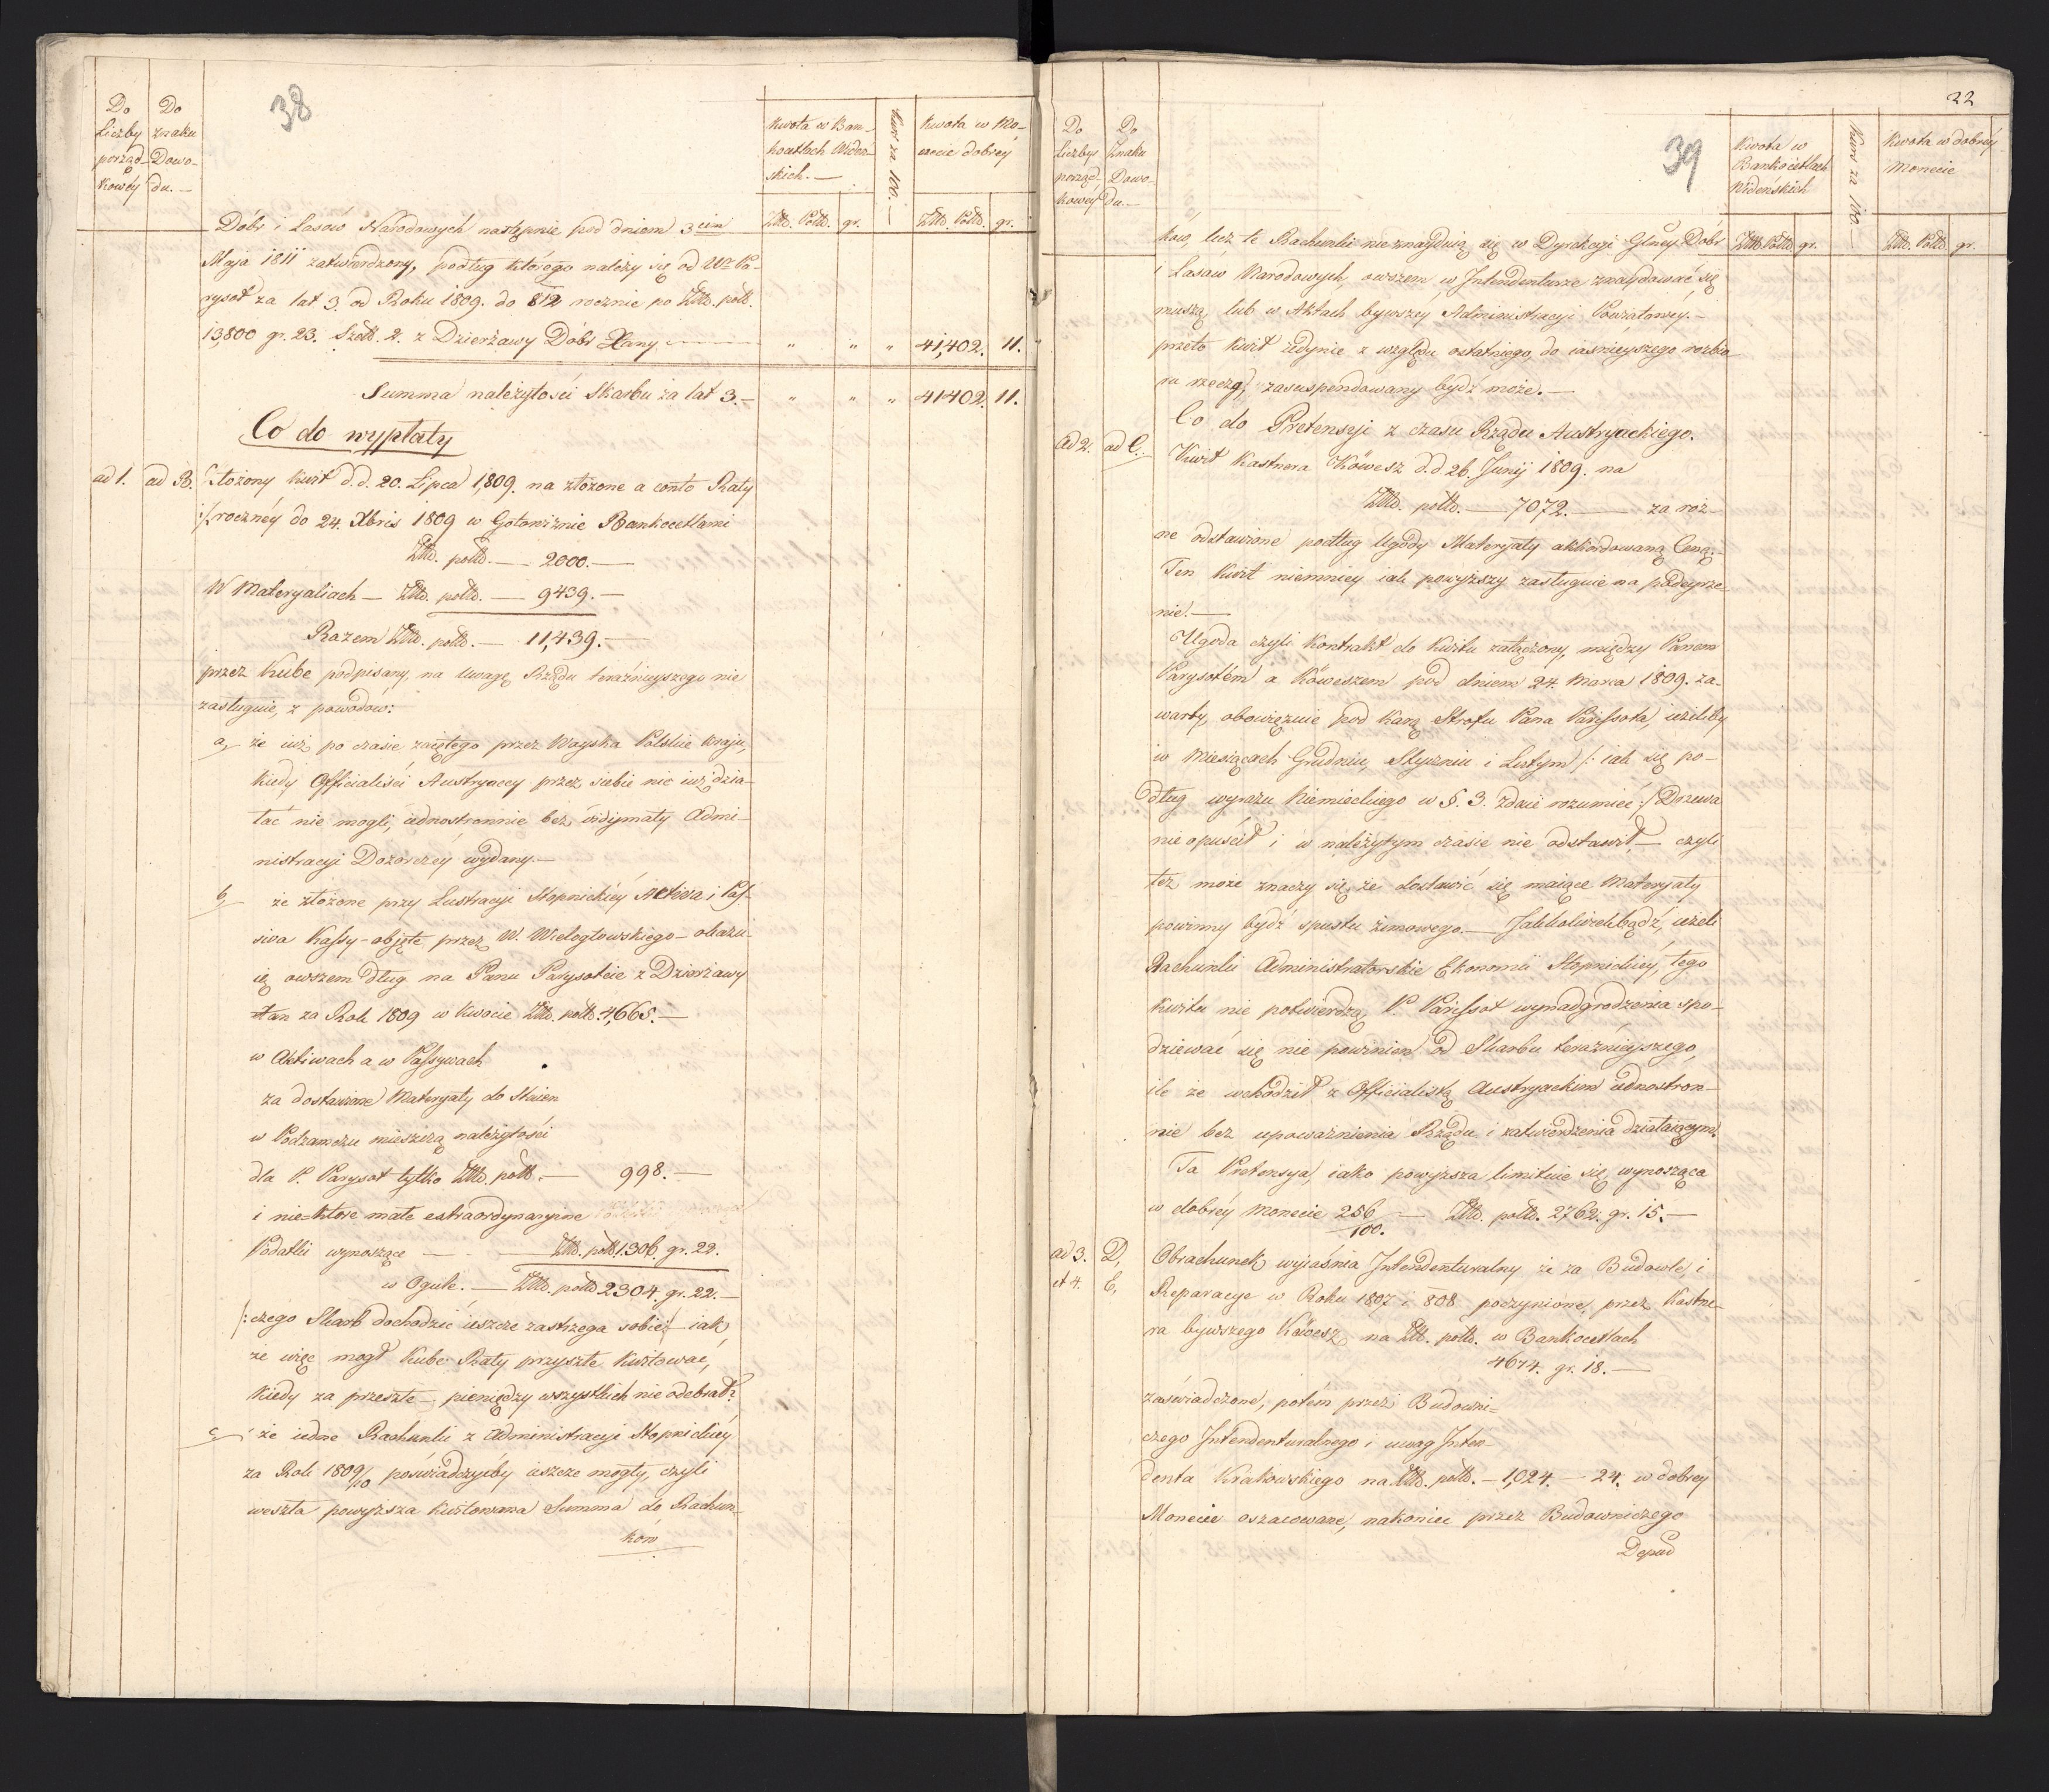 38
Do Liczby porząd-kowéy
Do znaku Dowo-du. —
Kwota w Ban-kocetlach Wideń-skich. —
Kurs za 100. —
Kwota w Mo-necie dobréy
Złtd. Poltd. gr. Złtd. Poltd. gr.
Dóbr i Lasów Narodowych następnie pod dniem 3cim
Maja 1811 zatwierdzony, podług którego należy się od Wo Pa-
rysot za lat 3. od Roku 1809. do 812 rocznie po Złtd. poltd.
13,800 gr. 23. Szel. 2. z Dzierżawy Dóbr Xany — " " " 41,402. 11.
Summa należytości Skarbu za lat 3. — " " " 41402. 11.
Co do wypłaty
ad 1. ad B. Złożony kwit d.d. 20. Lipca 1,809. na złożone a conto Raty
roczney do 24. Xbris 1809 w Gotowiznie Bankocetlami
Złtd. poltd. — 2000. —
W Materyaliach — Złtd. poltd. — 9439. —
Razem Złtd. poltd. — 11,439. —
przez Kube podpisany, na uwagę Rządu teraźnieyszego nie
zasługuie, z powodów:
a, że iuż po czasie zaiętego przez Woyska Polskie kraju,
kiedy Officialiści Austryaccy przez siebie nic iuż dzia-
łać nie mogli, iednostronnie bez widymaty Admi-
nistracyi Dozorczéy wydany. —
b, że złożone przy Lustracyi Stopnickiéy Activa i Pas-
siva Kassy - objęte przez W. Wielogłowskiego - okazu-
ią owszem Dług na Panu Parysotcie z Dzierżawy
Xan za Rok 1809 w Kwocie Złtd. poltd. 4,665. —
w Aktiwach a w Passywach
za dostawione Materyały do Stuien
w Podzamczu mieszczą należytości
dla P. Parysot tylko Złtd. poltd. — 998. —
i nie=które małe extraordynaryine
Podatki wynoszące — Złtd. poltd. 1306. gr. 22.
w Ogule. — Złtd. poltd. 2304. gr. 22. —
/: czego Skarb dochodzić ieszcze zastrzega sobie :/ — iak
że więc mogł Kube Raty przyszłe kwitować,
kiedy za przeszłe — pieniędzy wszystkich nie odebrał?
c, że iedne Rachunki z Administracyi Stopnickiéy
za Rok 1809/10 poświadczyćby ieszcze mogły, czyli
weszła powyższa kwitowana Summa do Rachun-
ków
22
39
Do Liczby porząd-kowéy
Do Znaku Dowo-du. —
Kwota w Bankocetlach Wideńskich
Kurs za 100. —
Kwota w dobréy Monecie
Złtd. Poltd. gr. Złtd. Poltd. gr.
ków, lecz te Rachunki nieznayduią się w Dyrekcyi Głney Dóbr
i Lasów Narodowych, owszem w Intendenturze znaydować się
muszą, lub w Aktach bywszéy Administracyi Powiatowey. —
przeto kwit iedynie z względu ostatniego, do iaśnieyszego rozbio-
ru rzeczy, zasuspendowany bydź może. —
Co do Pretensyi z czasu Rządu Austryackiego.
ad 2. ad C. Kwit Kastnera Köwesz d.d 26. Junij 1809. na
Złtd. poltd. — 7072. — za roż-
ne odstawione podług Ugody Materyały akkordowaną Ceną. —
Ten kwit niemniey iak powyższy zasługuie na podeyrze-
nie. —
Ugoda czyli kontrakt do kwitu załączony, między Panem
Parysotem a Köweszem pod dniem 24. Marca 1809. za-
warty, obowięzuie pod karą Strofu Pana Parissota, ieżiliby
w Miesiącach Grudniu, Styczniu i Lutym /: iak się po-
dług wyrazu Niemieckiego w §. 3. zdaie rozumieć :/ Drzewa
nie opuścił i w należytym czasie nie odstawił, — czyli
też może znaczy się, że dostawić się maiące Materyały
powinny bydź spustu zimowego. — Jakkolwiekbądź, ieżeli
Rachunki Administratorskie Ekonomii Stopnickiéy, tego
kwitu nie potwierdzą, P. Parissot wynadgrodzenia spo-
dziewać się nie powinien od Skarbu teraźnieyszego,
ile że wchodził z Officialistą Austryackim iednostron-
nie bez upoważnienia Rządu i zatwierdzenia działaiącym.
Ta Pretensya, iako powyższa limituie się wynosząca
w dobréy Monecie 256/100. — Złtd. poltd. 2762. gr. 15. —
ad 3. D, Obrachunek wyiaśnia Intendenturalny że za Budowle, i
et 4. E, Reparacye w Roku 1807 i 808 poczynione, przez Kastne-
ra bywszego Köwesz na Złtd. poltd. w Bankocetlach
4674. gr. 18. —
zaświadczone, potém przez Budowni=
czego Intendenturalnego i uwag Inten-
denta Krakowskiego na Złtd. poltd. — 1,024. — 24. w dobrey
Monecie oszacowane, nakoniec przez Budowniczego
Depar